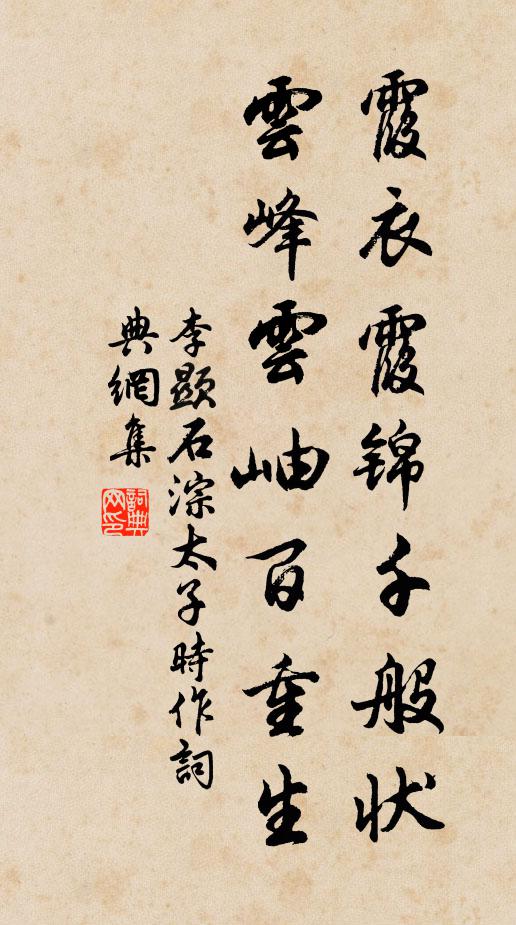 霞衣霞錦千般狀
雲峰雲岫百重生
李顯石淙太子時作詞
典網集
詞典
网印